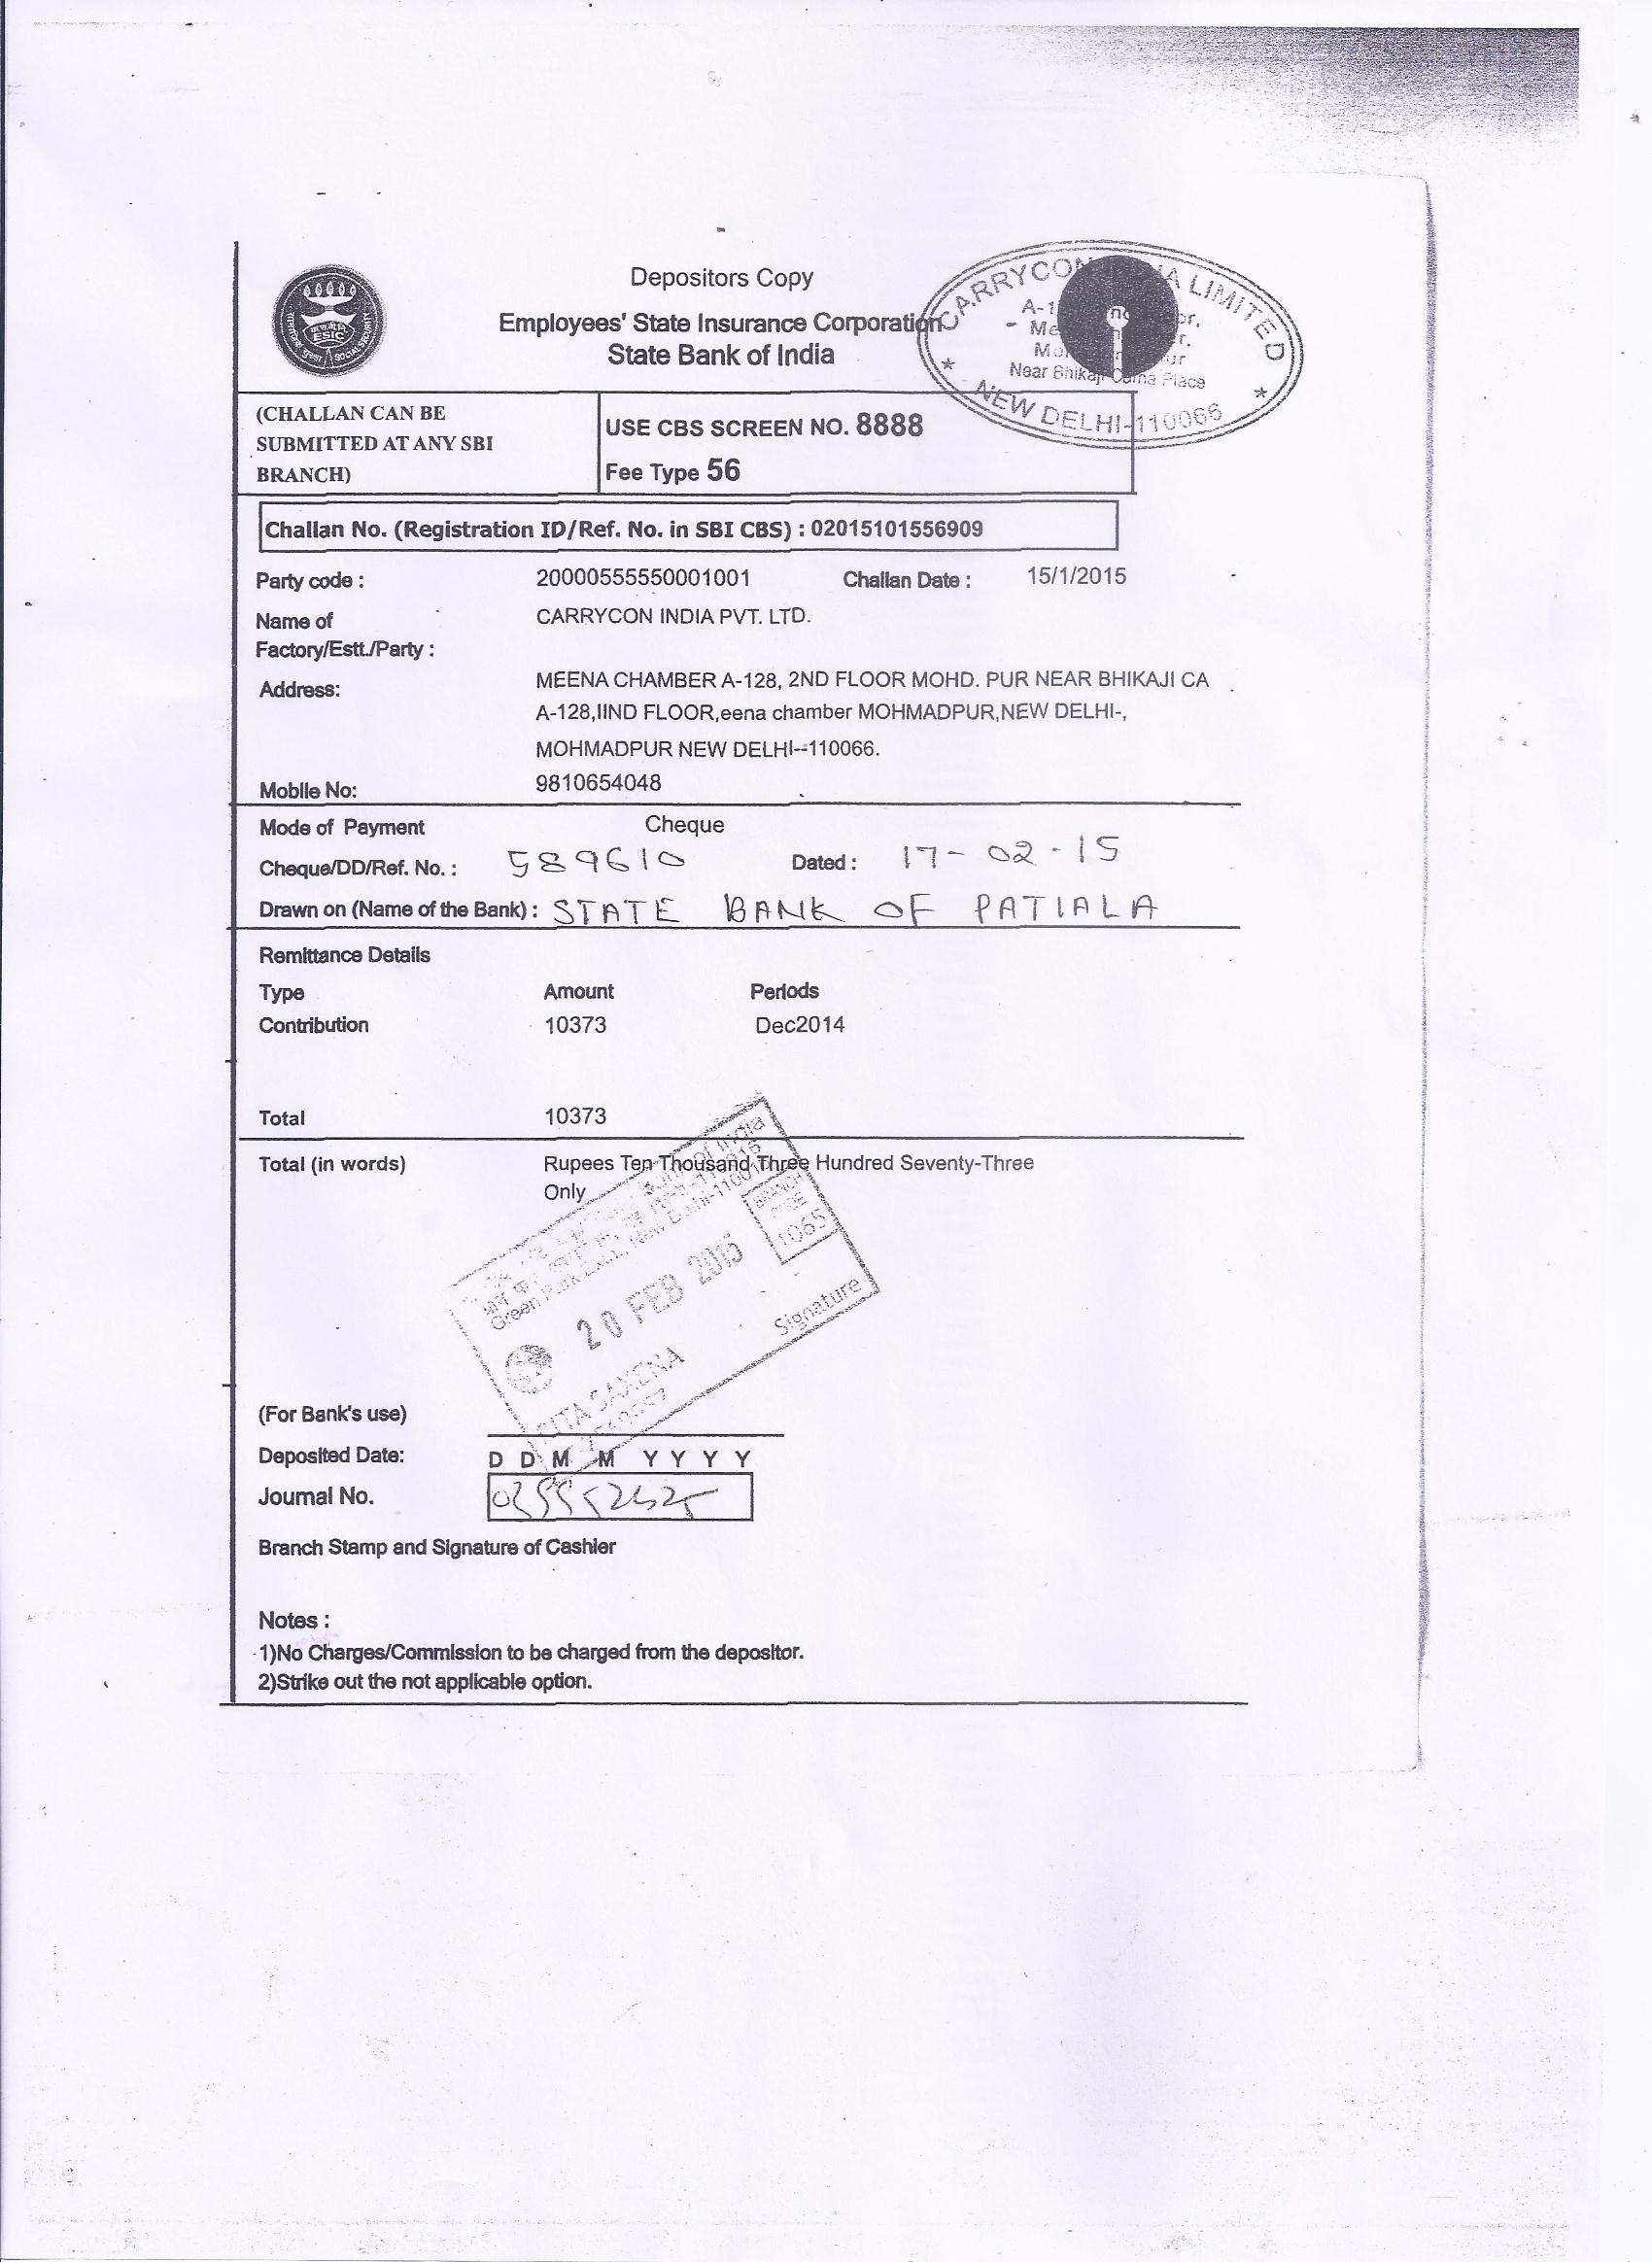 Depositors Copy
Employees' State Insurance Corporation
State Bank of India
ESIC
SOCIAL SECURITY
CARRYCON INDIA LIMITED
Near Bhikaji Cama Place
NEW DELHI-110066
(CHALLAN CAN BE
SUBMITTED AT ANY SBI
BRANCH)
USE CBS SCREEN NO. 8888
Fee Type 56
Challan No. (Registration ID/Ref. No. in SBI CBS) : 02015101556909
Party code : 20000555550001001 Challan Date : 15/1/2015
Name of CARRYCON INDIA PVT. LTD.
Factory/Estt./Party :
Address: MEENA CHAMBER A-128, 2ND FLOOR MOHD. PUR NEAR BHIKAJI CA
A-128,IIND FLOOR,eena chamber MOHMADPUR,NEW DELHI-,
MOHMADPUR NEW DELHI--110066.
Mobile No: 9810654048
Mode of Payment Cheque
Cheque/DD/Ref. No. : 589610 Dated : 17-02-15
Drawn on (Name of the Bank) : STATE BANK OF PATIALA
Remittance Details
Type Amount Periods
Contribution 10373 Dec2014
Total 10373
Total (in words) Rupees Ten Thousand Three Hundred Seventy-Three
Only
Green Park Extn., New Delhi-110016
BRANCH
CODE
1065
20 FEB 2015
Signature
SAXENA
(For Bank's use)
Deposited Date: D D M M Y Y Y Y
Journal No.
Branch Stamp and Signature of Cashier
Notes :
1)No Charges/Commission to be charged from the depositor.
2)Strike out the not applicable option.